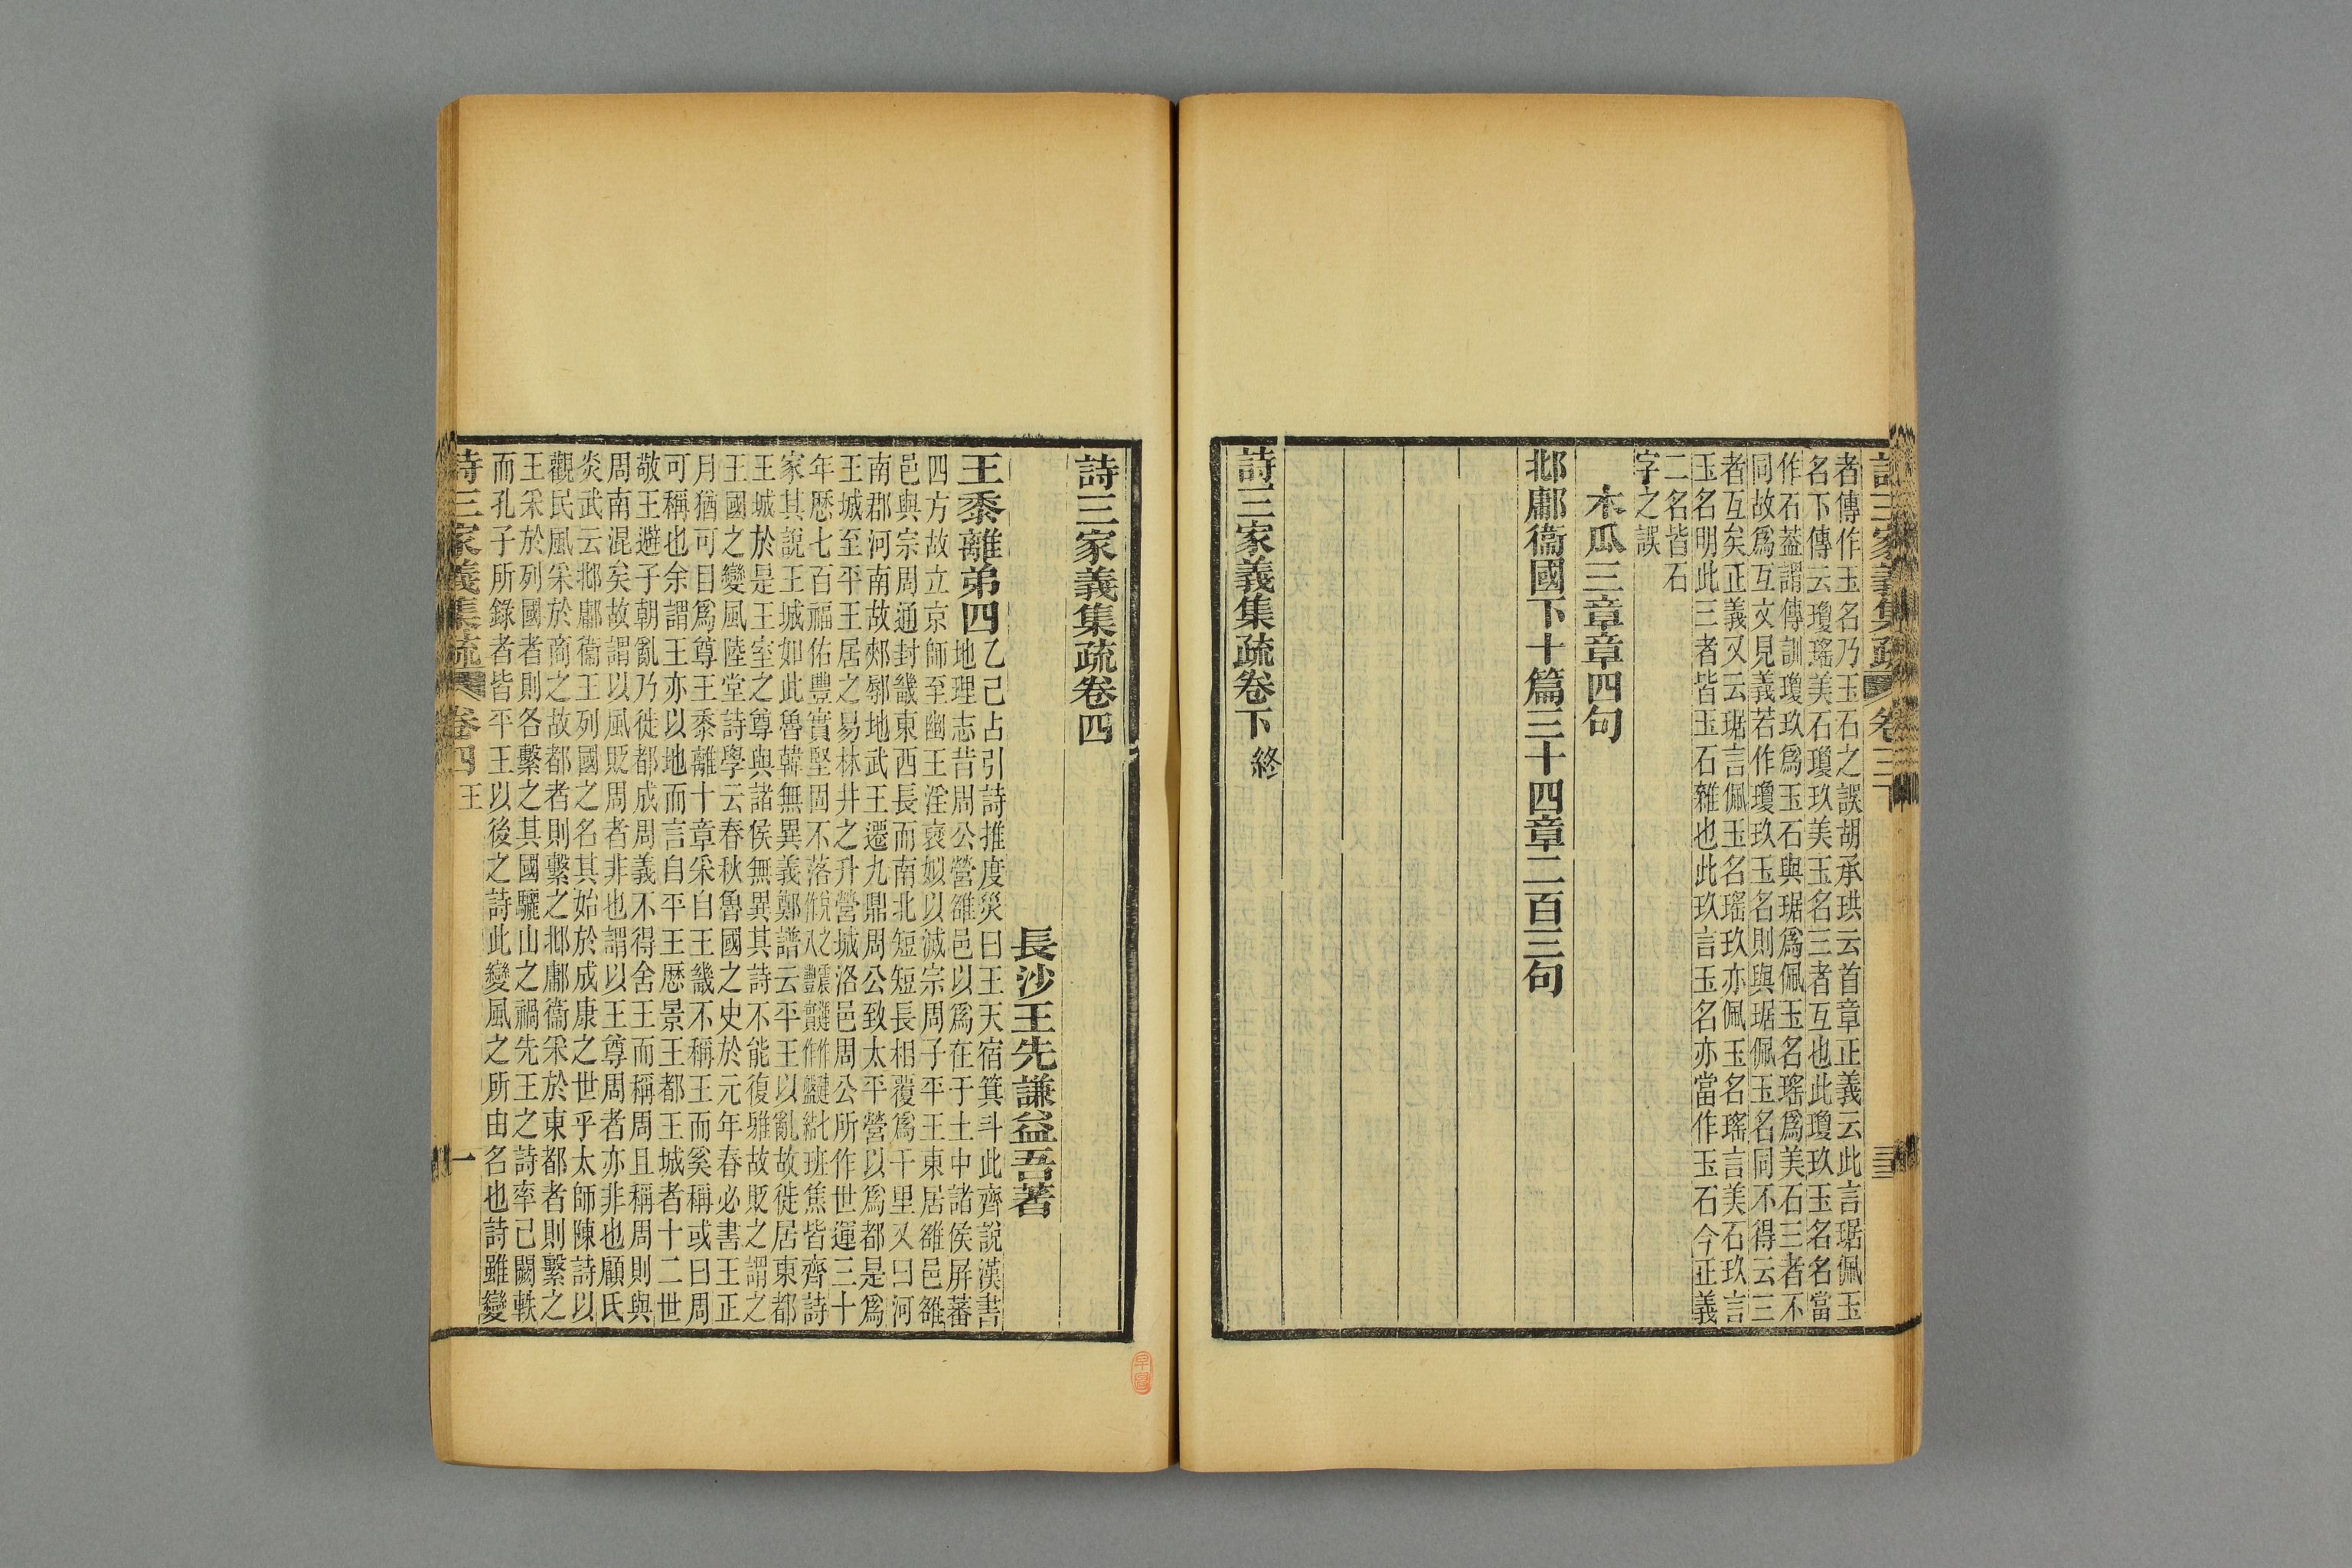 詩三家義集疏 卷三下 三三
者傳作玉名乃玉石之誤胡承珙云首章正義云此言琚佩玉
名下傳云瓊瑤美石瓊玖美玉名三者互也此瓊玖玉名名當
作石蓋謂傳訓瓊玖爲玉石與琚爲佩玉名瑤爲美石三者不
同故爲互文見義若作瓊玖玉名則與琚佩玉名同不得云三
者互矣正義又云琚言佩玉名瑤玖亦佩玉名瑤言美石玖言
玉名明此三者皆玉石雜也此玖言玉名亦當作玉石今正義
二名皆石
字之誤
木瓜三章章四句
邶鄘衞國下十篇三十四章二百三句
詩三家義集疏卷下 終
詩三家義集疏卷四
長沙王先謙益吾著
王黍離弟四
乙己占引詩推度災曰王天宿箕斗此齊說漢書
地理志昔周公營雒邑以爲在于土中諸侯屏蕃
四方故立京師至幽王淫襃姒以滅宗周子平王東居雒邑雒
邑與宗周通封畿東西長而南北短短長相覆爲千里又曰河
南郡河南故郟鄏地武王遷九鼎周公致太平營以爲都是爲
王城至平王居之易林井之升營城洛邑周公所作世運三十
年歷七百福佑豐實堅固不落 班焦皆齊詩
家其說王城如此魯韓無異義鄭譜云平王以亂故徙居東都
王城於是王室之尊與諸侯無異其詩不能復雅故貶之謂之
王國之變風陸堂詩學云春秋魯國之史於元年春必書王正
月猶可目爲尊王黍離十章采自王畿不稱王而奚稱或曰周
可稱也余謂王亦以地而言自平王歷景王都王城者十二世
敬王避子朝亂乃徙都成周義不得舍王而稱周且稱周則與
周南混矣故謂以風貶周者非也謂以王尊周者亦非也顧氏
炎武云邶鄘衞王列國之名其始於成康之世乎太師陳詩以
觀民風采於商之故都者則繫之邶鄘衞采於東都者則繫之
王采於列國者則各繫之其國驪山之禍先王之詩率已闕軼
而孔子所錄者皆平王以後之詩此變風之所由名也詩雖變
詩三家義集疏 卷四 王 一